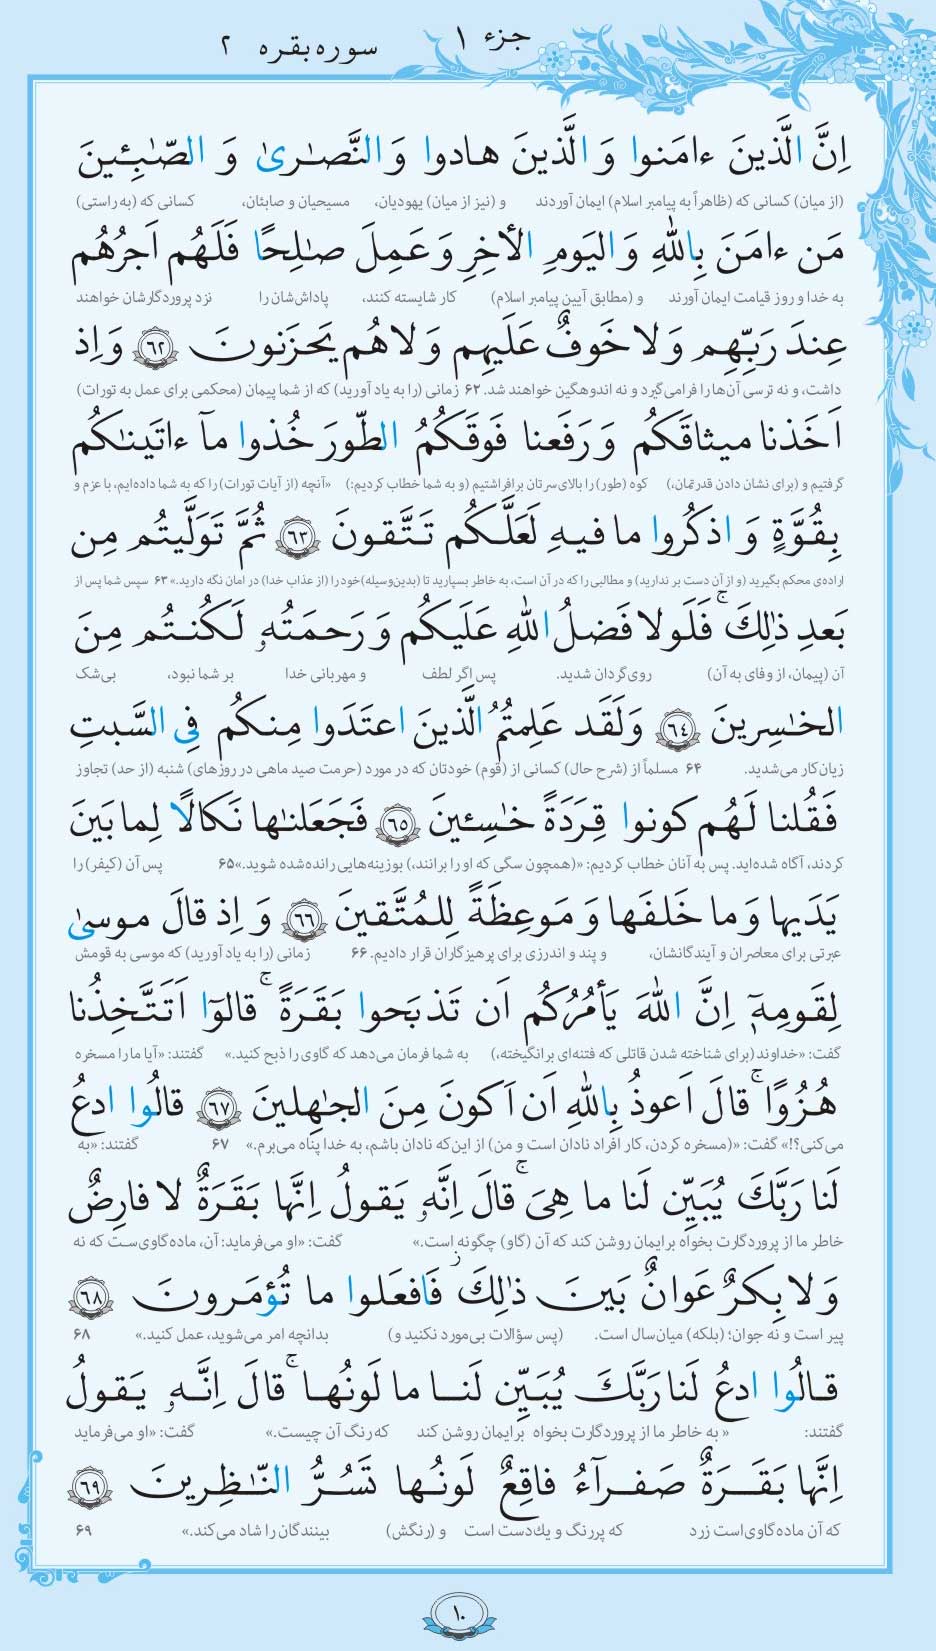 جزء ۱
سوره بقره ۲
اِنَّ الَّذينَ ءامَنوا وَ الَّذينَ هادوا وَ النَّصـٰرىٰ وَ الصّـٰبِـئينَ
(از میان) کسانی که (ظاهراً به پیامبر اسلام) ایمان آوردند و (نیز از میان) یهودیان، مسیحیان و صابئان، کسانی که (به راستی)
مَن ءامَنَ بِاللّٰهِ وَ اليَومِ الأخِرِ وَ عَمِلَ صـٰلِحًا فَلَهُم اَجرُهُم
به خدا و روز قیامت ایمان آورند و (مطابق آیین پیامبر اسلام) کار شایسته کنند، پاداش‌شان را نزد پروردگارشان خواهند
عِندَ رَبِّهِم وَ لا خَوفٌ عَلَيهِم وَ لا هُم يَحزَنونَ ﴿٦٢﴾ وَ اِذ
داشت، و نه ترسی آن‌ها را فرامی‌گیرد و نه اندوهگین خواهند شد. ۶۲ زمانی (را به یاد آورید) که از شما پیمان (محکمی برای عمل به تورات)
اَخَذنا ميثاقَكُم وَ رَفَعنا فَوقَكُمُ الطّورَ خُذوا مآ ءاتَينـٰكُم
گرفتیم و (برای نشان دادن قدرتمان،) کوه (طور) را بالای سرتان برافراشتیم (و به شما خطاب کردیم:) «آنچه (از آیات تورات) را که به شما داده‌ایم، با عزم و
بِقُوَّةٍ وَ اذكُروا ما فيهِ لَعَلَّكُم تَتَّقونَ ﴿٦٣﴾ ثُمَّ تَوَلَّيتُم مِن
اراده‌ی محکم بگیرید (و از آن دست بر ندارید) و مطالبی را که در آن است، به خاطر بسپارید تا (بدین‌وسیله) خود را (از عذاب خدا) در امان نگه دارید.» ۶۳ سپس شما پس از
بَعدِ ذٰلِكَ ۚ فَلَولا فَضلُ اللّٰهِ عَلَيكُم وَ رَحمَتُهٗ لَكُنتُم مِنَ
آن (پیمان، از وفای به آن) روی‌گردان شدید. پس اگر لطف و مهربانی خدا بر شما نبود، بی‌شک
الخـٰسِرينَ ﴿٦٤﴾ وَ لَقَد عَلِمتُمُ الَّذينَ اعتَدَوا مِنكُم فِى السَّبتِ
زیان‌کار می‌شدید. ۶۴ مسلماً از (شرح حال) کسانی از (قوم) خودتان که در مورد (حرمت صید ماهی در روزهای) شنبه (از حد) تجاوز
فَقُلنا لَهُم كونوا قِرَدَةً خـٰسِـئينَ ﴿٦٥﴾ فَجَعَلنـٰها نَكالًا لِما بَينَ
کردند، آگاه شده‌اید. پس به آنان خطاب کردیم: «(همچون سگی که او را برانند،) بوزینه‌هایی رانده‌شده شوید.» ۶۵ پس آن (کیفر) را
يَدَيها وَ ما خَلفَها وَ مَوعِظَةً لِلمُتَّقينَ ﴿٦٦﴾ وَ اِذ قالَ موسىٰ
عبرتی برای معاصران و آیندگانشان، و پند و اندرزی برای پرهیزگاران قرار دادیم. ۶۶ زمانی (را به یاد آورید) که موسی به قومش
لِقَومِهٖٓ اِنَّ اللّٰهَ يَأمُرُكُم اَن تَذبَحوا بَقَرَةً ۚ قالوٓا اَتَتَّخِذُنا
گفت: «خداوند (برای شناخته شدن قاتلی که فتنه‌ای برانگیخته،) به شما فرمان می‌دهد که گاوی را ذبح کنید.» گفتند: «آیا ما را مسخره
هُزُوًا ۚ قالَ اَعوذُ بِاللّٰهِ اَن اَكونَ مِنَ الجـٰهِلينَ ﴿٦٧﴾ قالُوا ادعُ
می‌کنی؟!» گفت: «(مسخره کردن، کار افراد نادان است و من) از این‌که نادان باشم، به خدا پناه می‌برم.» ۶۷ گفتند: «به
لَنا رَبَّكَ يُبَيِّن لَنا ما هِىَ ۚ قالَ اِنَّهٗ يَقولُ اِنَّها بَقَرَةٌ لا فارِضٌ
خاطر ما از پروردگارت بخواه برایمان روشن کند که آن (گاو) چگونه است.» گفت: «او می‌فرماید: آن، ماده‌گاوی‌ست که نه
وَ لا بِكرٌ عَوانٌ بَينَ ذٰلِكَ ۖ فَافعَلوا ما تُؤمَرونَ ﴿٦٨﴾
پیر است و نه جوان؛ (بلکه) میان‌سال است. (پس سؤالات بی‌مورد نکنید و) بدانچه امر می‌شوید، عمل کنید.» ۶۸
قالُوا ادعُ لَنا رَبَّكَ يُبَيِّن لَنا ما لَونُها ۚ قالَ اِنَّهٗ يَقولُ
گفتند: « به خاطر ما از پروردگارت بخواه برایمان روشن کند که رنگ آن چیست.» گفت: «او می‌فرماید
اِنَّها بَقَرَةٌ صَفرآءُ فاقِعٌ لَونُها تَسُرُّ النّـٰظِرينَ ﴿٦٩﴾
که آن ماده‌گاوی‌است زرد که پررنگ و یك‌دست است و (رنگش) بینندگان را شاد می‌کند.» ۶۹
۱۰